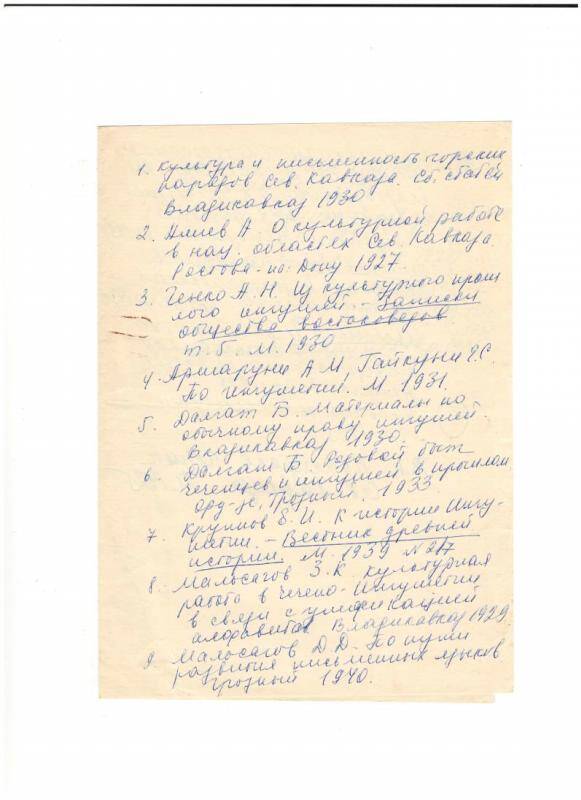 1. Культура и письменность горских
народов Сев. Кавказа. Сб. статей
Владикавказ 1930
2. Алиев А. О культурной работе
в нац. областях Сев. Кавказа.
Ростова-на-Дону 1927.
3. Генко А. Н. Из культурного прош
лого ингушей. – Записки
общества востоковедов
т. 5 М. 1930
4. Аршаруни А М, Гайкуни Г.С.
По Ингушетии. М. 1931.
5. Далгат Б. Материалы по
обычному праву ингушей.
Владикавказ 1930.
6. Далгат Б. Родовой быт
чеченцев и ингушей в прошлом
Орд-зе, Грозный. 1933
7. Крупнов Е. И. К истории Ингу-
шетии. – Вестник древней
истории. М. 1939 №2
8. Мальсагов З. К. Культурная
работа в Чечено-Ингушетии
в связи с унификацией
алфавита Владикавказ 1929.
9. Мальсагов Д. Д. По пути
развития письменных языков
Грозный 1940.